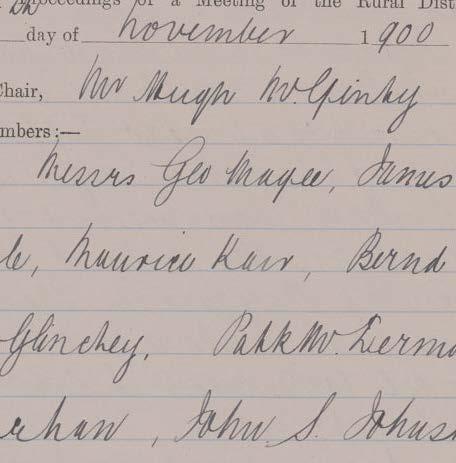 Proceedings of a Meeting of the Rural Dist
th day of November 1900
Chair, Mr Hugh McGinty
mbers:—
Messrs Geo Magee, James
le, Maurice Karr, Bernd
Glinchey, Patk McDermo
rhan, John S. Johns